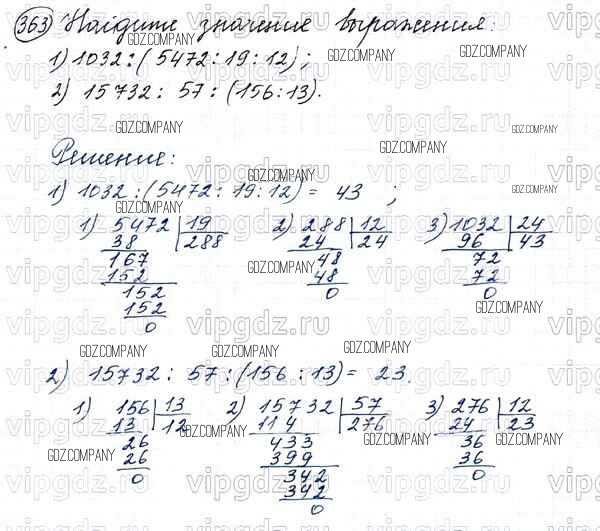 363 Найдите значение выражения:
1) 1032 : (5472 : 19 : 12);
2) 15732 : 57 : (156 : 13).
Решение:
1) 1032 : (5472 : 19 : 12) = 43 ;
1) 5472 | 19 2) 288 | 12 3) 1032 | 24
38 288 24 24 96 43
167 48 72
152 48 72
152 0 0
152
0
2) 15732 : 57 : (156 : 13) = 23.
1) 156 | 13 2) 15732 | 57 3) 276 | 12
13 12 114 276 24 23
26 433 36
26 399 36
0 342 0
342
0
vipgdz.ru
GDZ.COMPANY